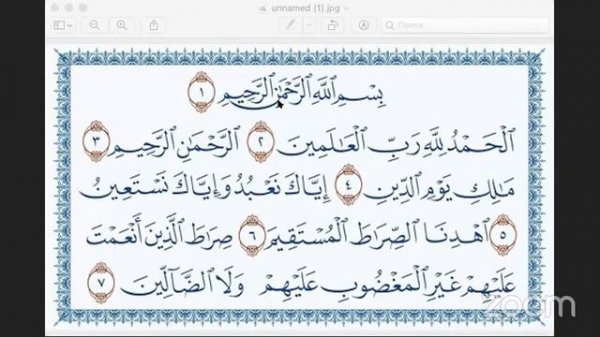 unnamed (1).jpg
Поиск
بِسْمِ ٱللَّهِ ٱلرَّحْمَٰنِ ٱلرَّحِيمِ ١
ٱلْحَمْدُ لِلَّهِ رَبِّ ٱلْعَٰلَمِينَ ٢ ٱلرَّحْمَٰنِ ٱلرَّحِيمِ ٣
مَٰلِكِ يَوْمِ ٱلدِّينِ ٤ إِيَّاكَ نَعْبُدُ وَإِيَّاكَ نَسْتَعِينُ
٥ ٱهْدِنَا ٱلصِّرَٰطَ ٱلْمُسْتَقِيمَ ٦ صِرَٰطَ ٱلَّذِينَ أَنْعَمْتَ
عَلَيْهِمْ غَيْرِ ٱلْمَغْضُوبِ عَلَيْهِمْ وَلَا ٱلضَّآلِّينَ ٧
zoom